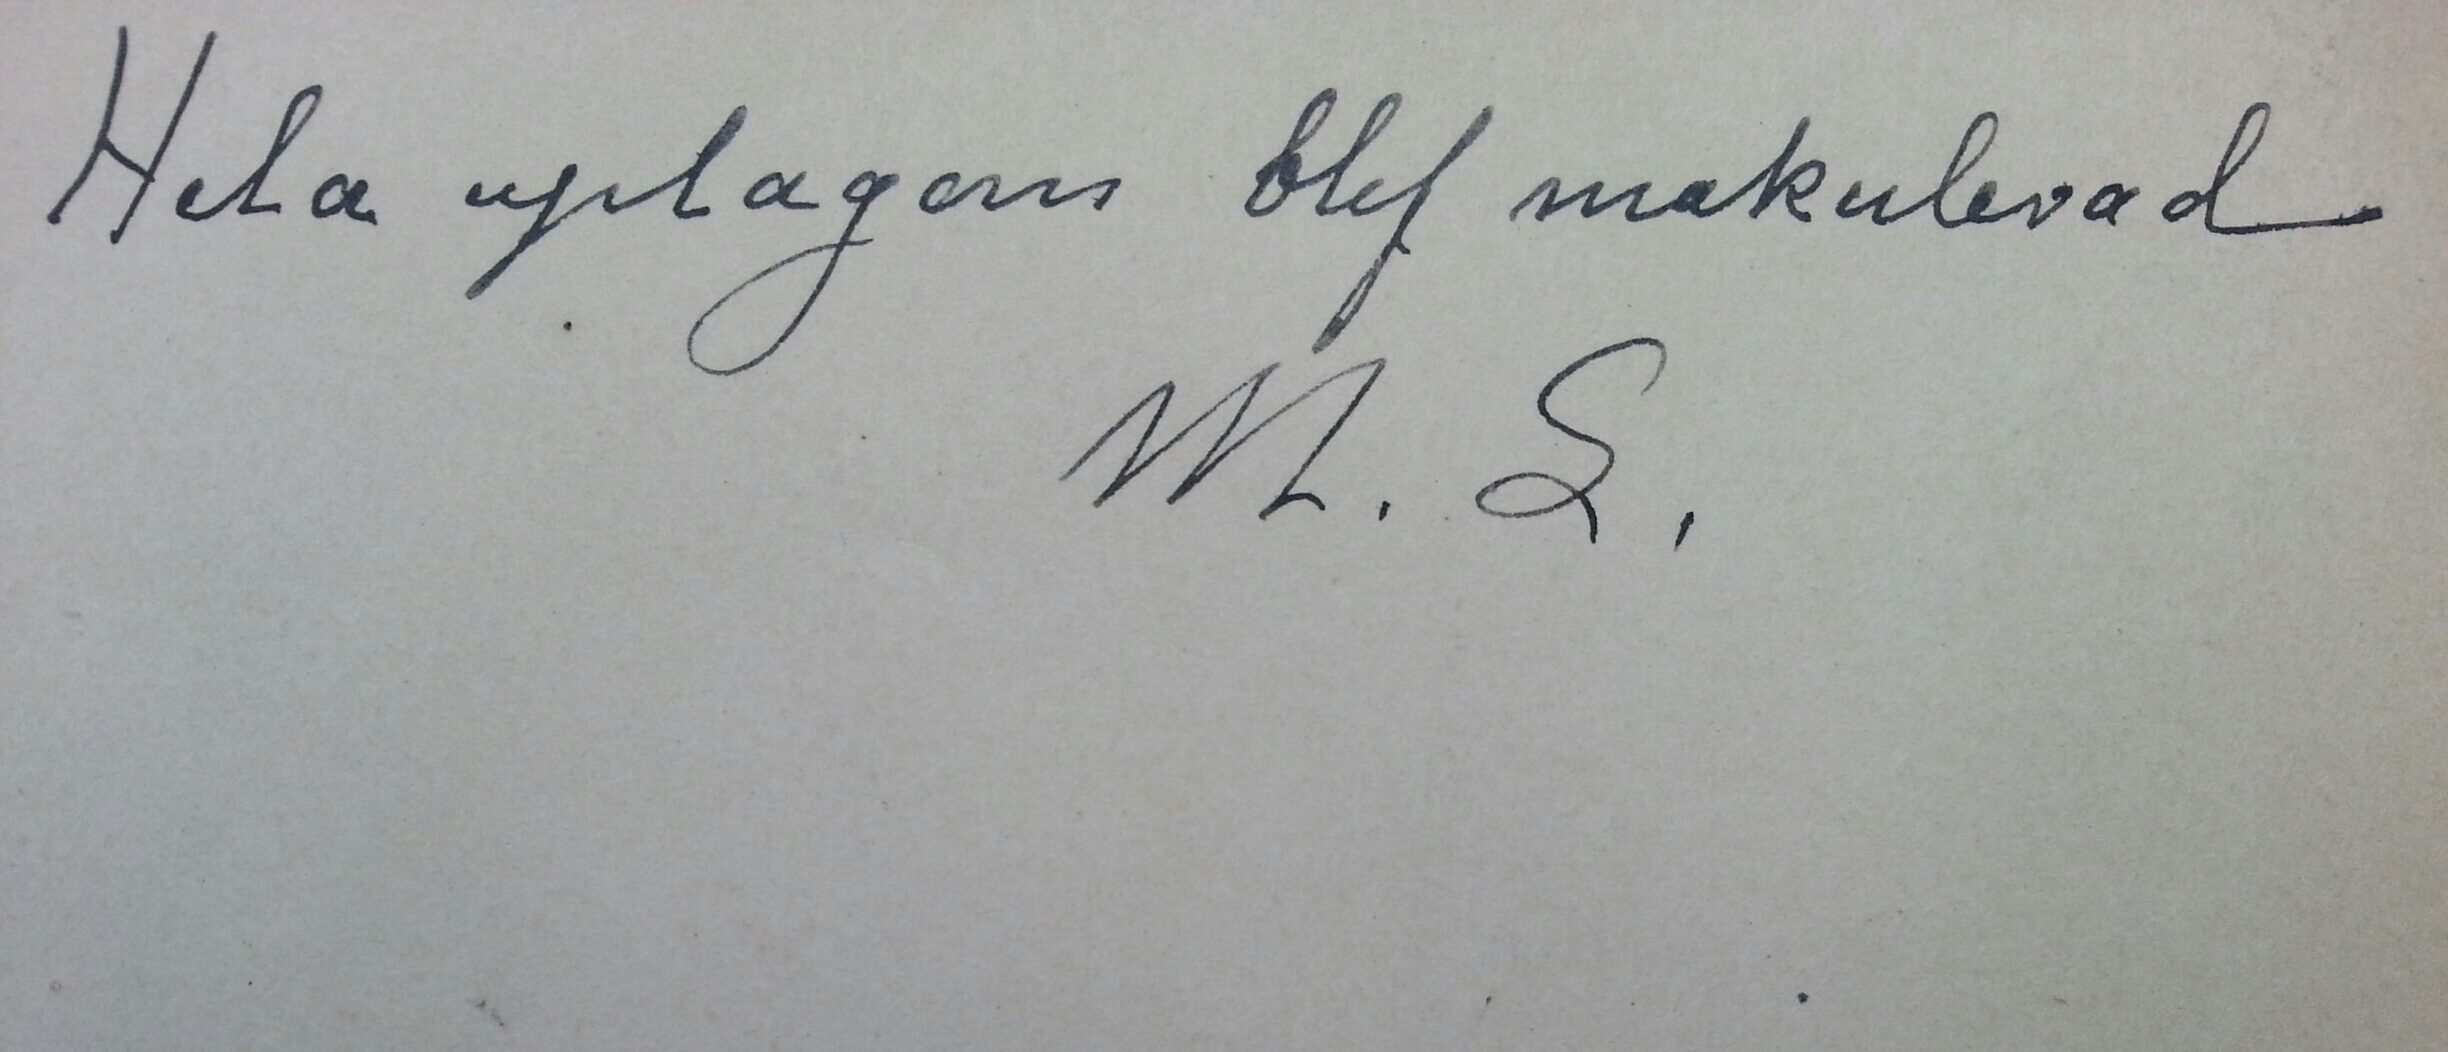 Hela uplagan blef makulerad
M. S.